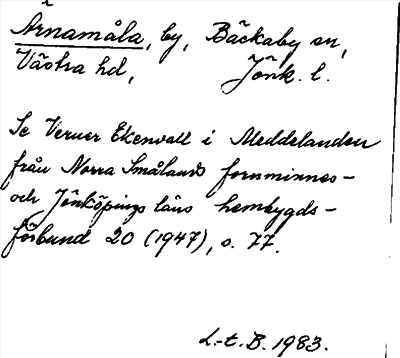 Årnamåla, by, Bäckaby sn,
Västra hd, Jönk. l.
Se Verner Ekenvall i Meddelanden
från Norra Smålands fornminnes-
och Jönköpings läns hembygds-
förbund 20 (1947), s. 77.
L.-t. B. 1983.